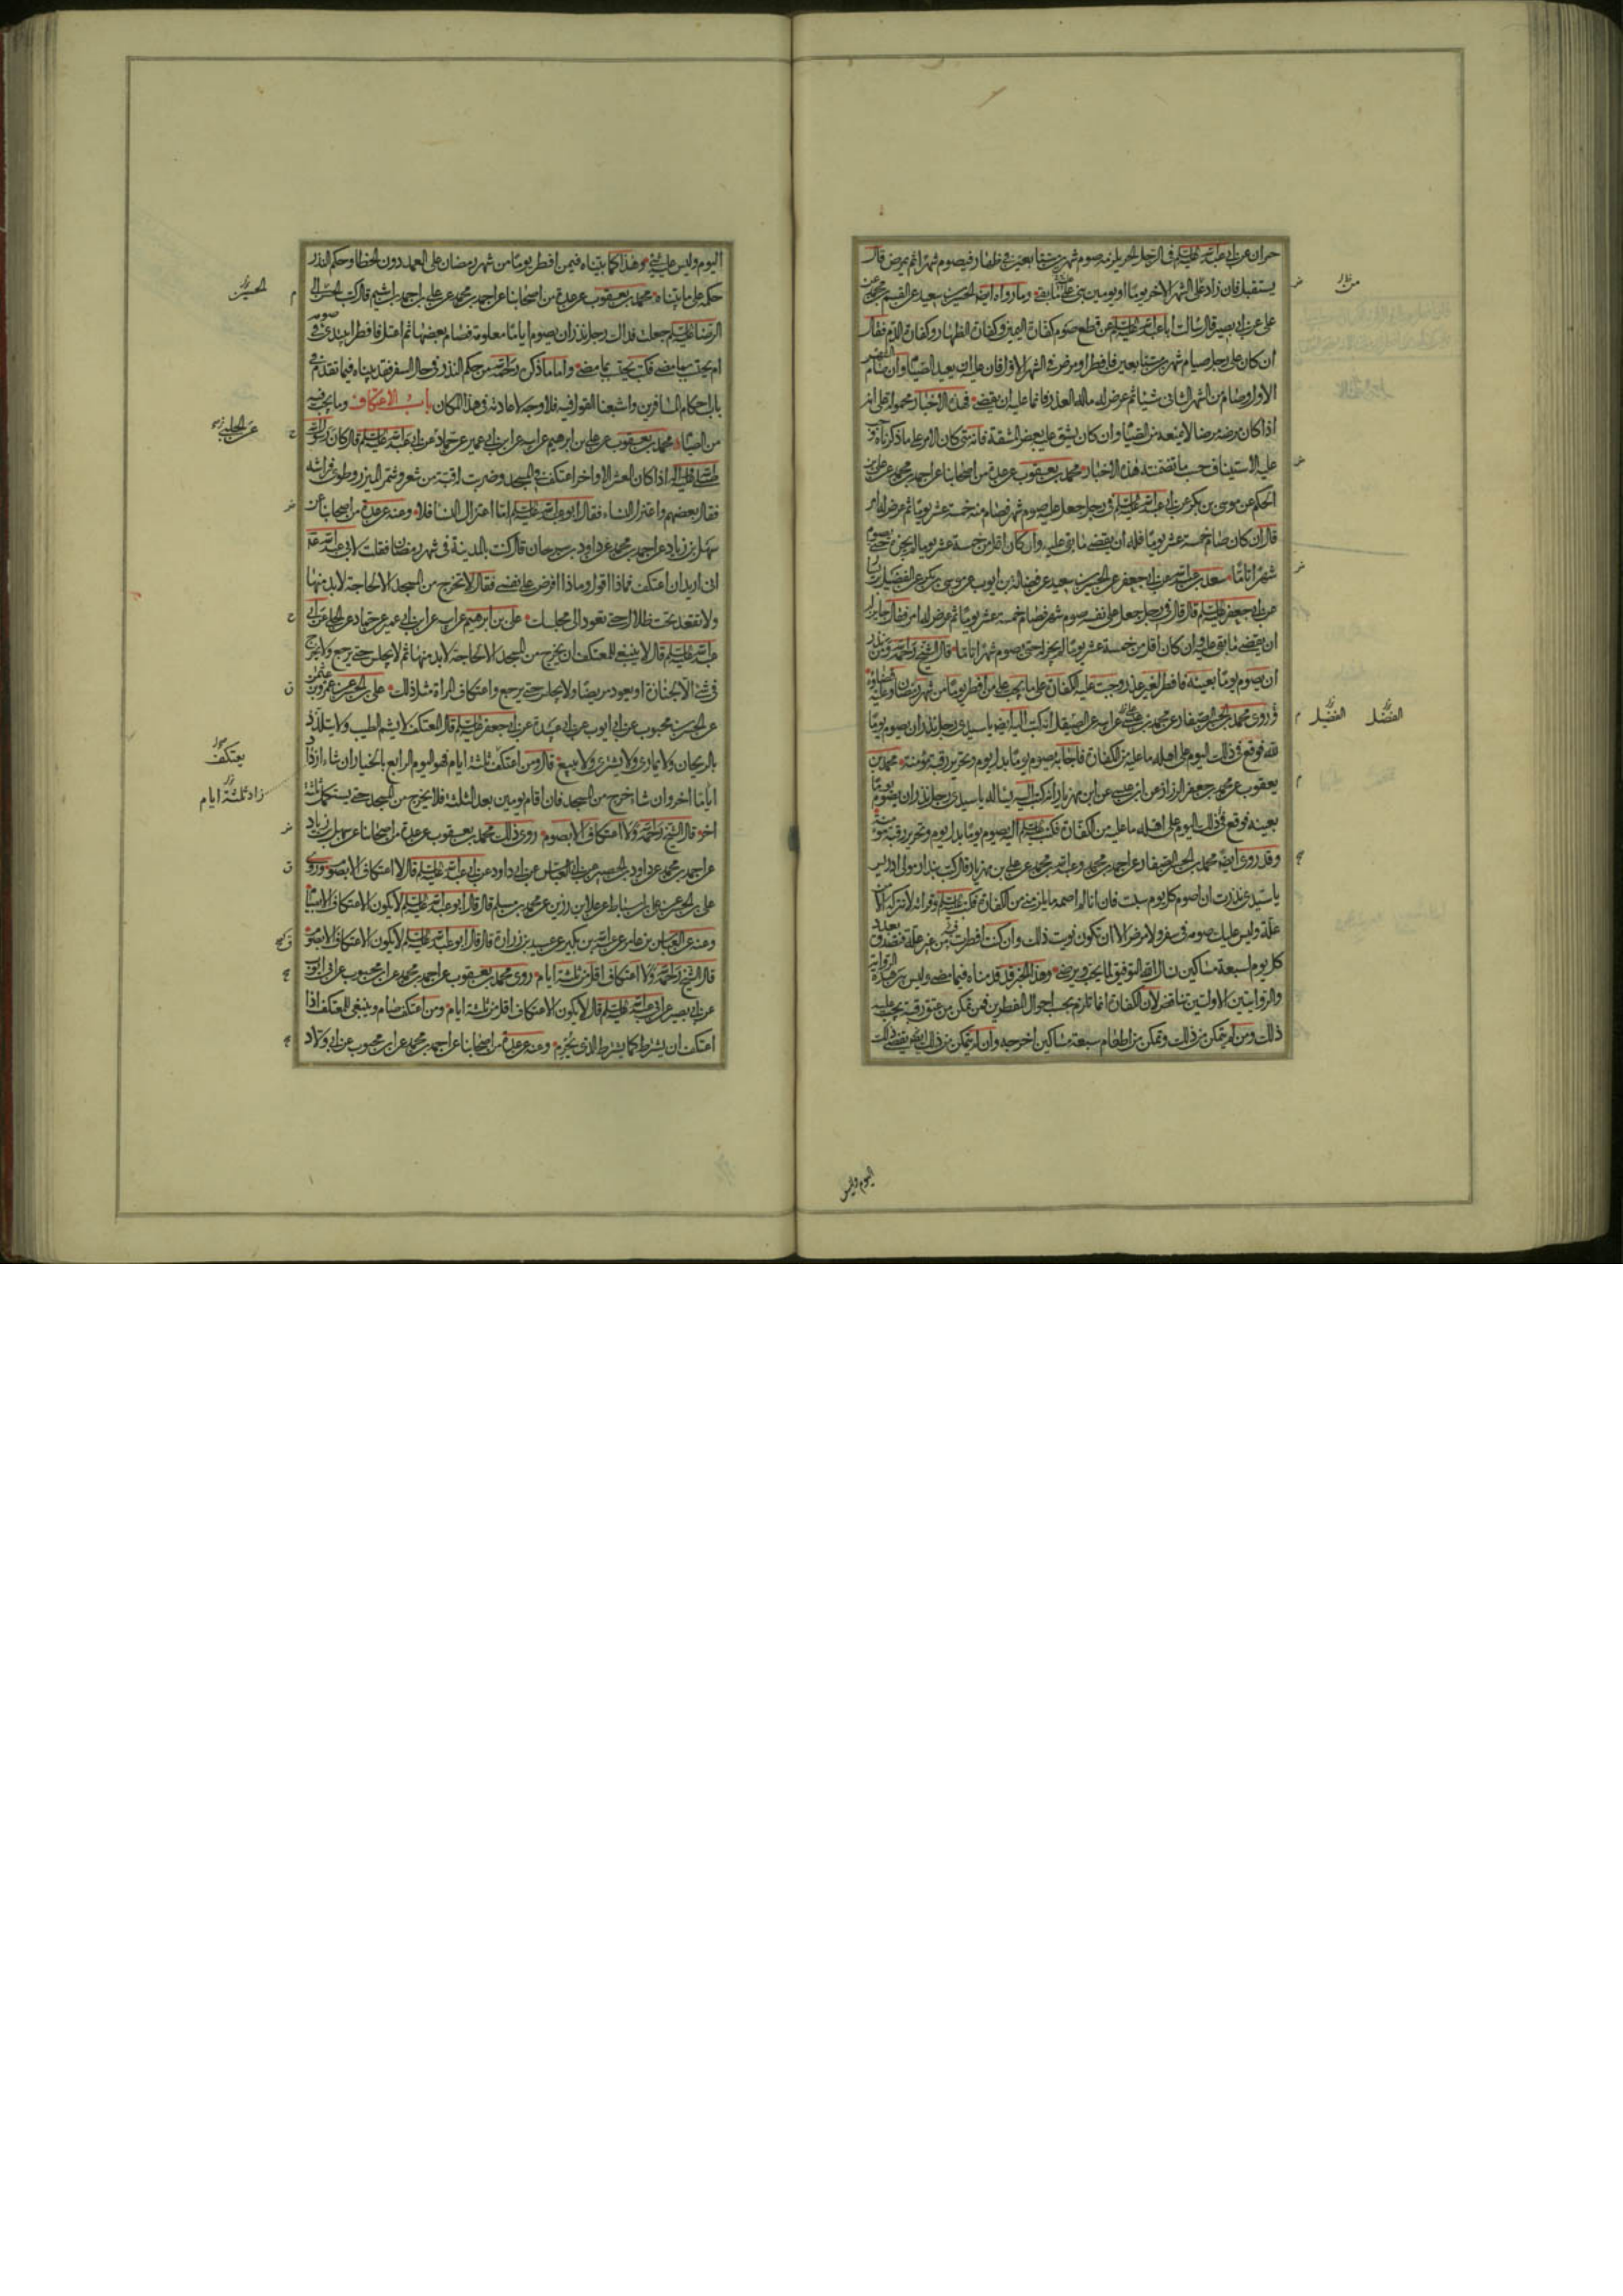 حمران عن ابى عبد الله عليه السلم فى الرجل الحر يلزمه صوم شهرين متتابعين فى ظهار فيصوم شهرا ثم يمرض قال
يستقبل فان زاد على الشهر الاخر يوما او يومين بنى على ما بقى وما رواه ايضا الحسين بن سعيد عن القسم بن محمد عن
على عن ابى بصير قال سالت ابا عبد الله عليه السلم عن قطع صوم كفارة اليمين وكفارة الظهار وكفارة الدم فقال
ان كان على رجل صيام شهرين متتابعين فافطر او مرض فى الشهر الاول فان عليه ان يعيد الصيام وان صام الشهر
الاول وصام من الشهر الثانى شيئا ثم عرض له ما له العذر فانما عليه ان يقضى فهذه الاخبار محمولة على انه
اذا كان مرضه مرضا لا يمنعه من الصيام وان كان يشق عليه بعض المشقة فانه متى كان الامر على ما ذكرناه وجب
عليه الاستيناف حسب ما تضمنته هذه الاخبار محمد بن يعقوب عن عدة من اصحابنا عن احمد بن محمد عن على بن
الحكم عن موسى بن بكر عن ابى عبد الله عليه السلم فى رجل جعل عليه صوم شهر فصام منه خمسة عشر يوما ثم عرض له امر
قال ان كان صام خمسة عشر يوما فله ان يقضى ما بقى عليه وان كان اقل من خمسة عشر يوما لم يجز حتى يصوم
شهرا تاما سعد بن عبد الله عن ابى جعفر عن الحسين بن سعيد عن فضالة بن ايوب عن موسى بن بكر عن الفضيل بن يسار
عن ابى جعفر عليه السلم قال قال فى رجل جعل على نفسه صوم شهر فصام خمسة عشر يوما ثم عرض له امر فقال جايز له
ان يقضى ما بقى عليه وان كان اقل من خمسة عشر يوما لم يجز له حتى يصوم شهرا تاما قال الشيخ رحمه الله ومن نذر
ان يصوم يوما بعينه فافطر لغير عذر وجبت عليه الكفارة على ما يجب على من افطر يوما من شهر رمضان وعليه قضاؤه
وروى محمد بن الحسن الصفار عن محمد بن عيسى عن الصيقل انه كتب اليه ايضا يا سيدى رجل نذر ان يصوم يوما
لله فوقع فى ذلك اليوم على اهله ما عليه من الكفارة فاجابه يصوم يوما بدل يوم وتحرير رقبة مؤمنة محمد بن
يعقوب عن محمد بن جعفر الرزاز عن ابن عيسى عن ابن مهزيار انه كتب اليه يساله يا سيدى رجل نذر ان يصوم يوما
بعينه فوقع فى ذلك اليوم على اهله ما عليه من الكفارة فكتب عليه السلم اليه يصوم يوما بدل يوم وتحرير رقبة مؤمنة
وقد روى ايضا محمد بن الحسن الصفار عن احمد بن محمد وعبد الله بن محمد عن على بن مهزيار قال كتب بندار مولى ادريس
يا سيدى نذرت ان اصوم كل يوم سبت فان انا لم اصمه ما يلزمنى من الكفارة فكتب عليه السلم وقراته لا تتركه الا من
علة وليس عليك صومه فى سفر ولا مرض الا ان تكون نويت ذلك وان كنت افطرت فيه من غير علة فتصدق بعدد
كل يوم لسبعة مساكين نسال الله التوفيق لما يحب ويرضى وهذا الخبر قد قدمناه فيما مضى وليس بين هذه الرواية
والروايتين الاولتين تناقض لان الكفارة انما تلزم بحسب احوال المفطرين فمن تمكن من عتق رقبة يجب عليه
ذلك ومن لم يتمكن من ذلك وتمكن من اطعام سبعة مساكين اخرجه وان لم يتمكن من ذلك ايضا يقضى ذلك
من
الفضل
الفضيل
اليوم وليس
اليوم وليس عليه شئ وهذا كما بيناه فيمن افطر يوما من شهر رمضان على العمد دون الخطا وحكم النذر
حكمه على ما بيناه محمد بن يعقوب عن عدة من اصحابنا عن احمد بن محمد عن على بن احمد بن اشيم قال كتب الحسين الى
الرضا عليه السلم جعلت فداك رجل نذر ان يصوم اياما معلومة فصام بعضها ثم اعتل فافطر ايبتدئ فى صومه
ام يحتسب بما مضى فكتب يحتسب بما مضى واما ما ذكره رحمه الله من حكم النذر فى حال السفر فقد بيناه فيما تقدم فى
باب احكام المسافرين واشبعنا القول فيه فلا وجه لاعادته فى هذا المكان باب الاعتكاف وما يجب فيه
من الصيام محمد بن يعقوب عن على بن ابرهيم عن ابيه عن ابن ابى عمير عن حماد عن ابى عبد الله عليه السلم قال كان رسول الله
صلى الله عليه واله اذا كان العشر الاواخر اعتكف فى المسجد وضربت له قبة من شعر وشمر الميزر وطوى فراشه
فقال بعضهم واعتزل النساء فقال ابو عبد الله عليه السلم اما اعتزال النسا فلا وعنه عن عدة من اصحابنا عن
سهل بن زياد عن احمد بن محمد عن داود بن سرحان قال كنت بالمدينة فى شهر رمضان فقلت لابى عبد الله عليه
انى اريد ان اعتكف فماذا اقول وماذا افرض على نفسى فقال لا تخرج من المسجد الا لحاجة لا بد منها
ولا تقعد تحت ظلال حتى تعود الى مجلسك على بن ابرهيم عن ابيه عن ابن ابى عمير عن حماد عن الحلبى عن ابى
عبد الله عليه السلم قال لا ينبغى للمعتكف ان يخرج من المسجد الا لحاجة لا بد منها ثم لا يجلس حتى يرجع ولا يخرج
فى شئ الا لجنازة او يعود مريضا ولا يجلس حتى يرجع واعتكاف المراة مثل ذلك على بن الحسن عن عمرو بن عثمن
عن الحسن بن محبوب عن ابى ايوب عن ابى عبيدة عن ابى جعفر عليه السلم قال المعتكف لا يشم الطيب ولا يتلذذ
بالريحان ولا يمارى ولا يشترى ولا يبيع قال ومن اعتكف ثلثة ايام فهو اليوم الرابع بالخيار ان شاء ازداد
اياما اخر وان شاء خرج من المسجد فان اقام يومين بعد الثلثة فلا يخرج من المسجد حتى يستكمل ثلثة
اخر قال الشيخ رحمه الله ولا اعتكاف الا بصوم روى ذلك محمد بن يعقوب عن عدة من اصحابنا عن سهل بن زياد
عن احمد بن محمد عن داود بن الحصين عن ابى العباس عن ابى داود عن ابى عبد الله عليه السلم قال لا اعتكاف الا بصوم وروى
على بن الحسن عن على بن اسباط عن علا بن رزين عن محمد بن مسلم قال قال ابو عبد الله عليه السلم لا يكون الاعتكاف الا بصيام
وعنه عن العباس بن عامر عن عبد الله بن بكير عن عبيد بن زرارة قال قال ابو عبد الله عليه السلم لا يكون الاعتكاف الا بصوم
قال الشيخ رحمه الله ولا اعتكاف اقل من ثلثة ايام روى محمد بن يعقوب عن احمد بن محمد عن ابن محبوب عن ابى ايوب
عن ابى بصير عن ابى عبد الله عليه السلم قال لا يكون الاعتكاف اقل من ثلثة ايام ومن اعتكف صام وينبغى للمعتكف اذا
اعتكف ان يشترط كما يشترط الذى يحرم وعنه عن عدة من اصحابنا عن احمد بن محمد عن ابن محبوب عن ابى ولاد
الحسين
عن الحلبى
يعتكف
زاد ثلثة ايام